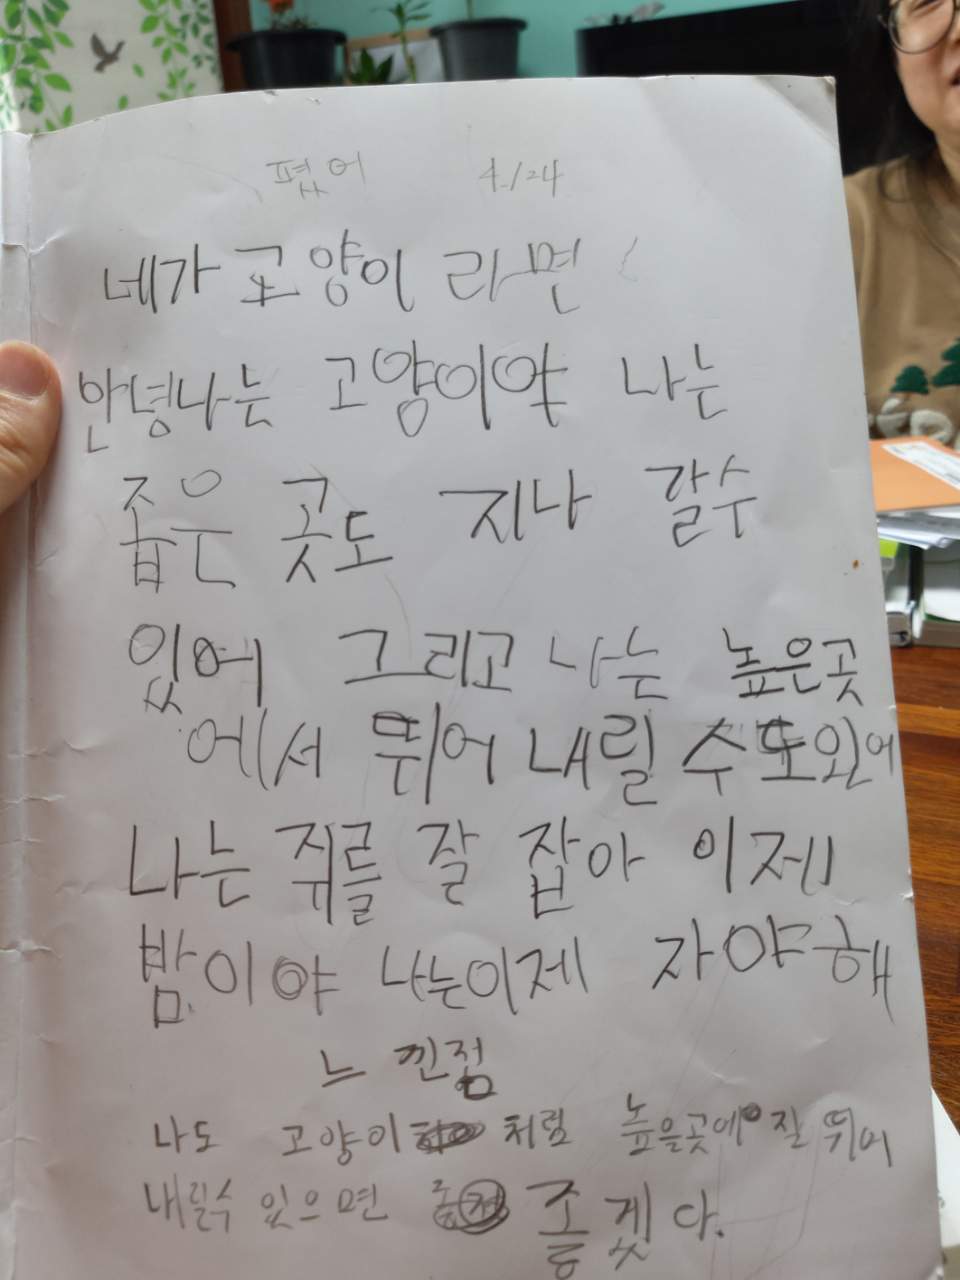 폈어 4/24
네가 고양이 라면
안녕나는 고양이야 나는
좁은 곳도 지나 갈수
있어 그리고 나는 높은곳
에서 뛰어 내릴 수도있어
나는 쥐를 잘 잡아 이제
밤이야 나는이제 자야해
느낀점
나도 고양이처럼 높은곳에 잘 뛰어
내릴수 있으면 좋겟다.